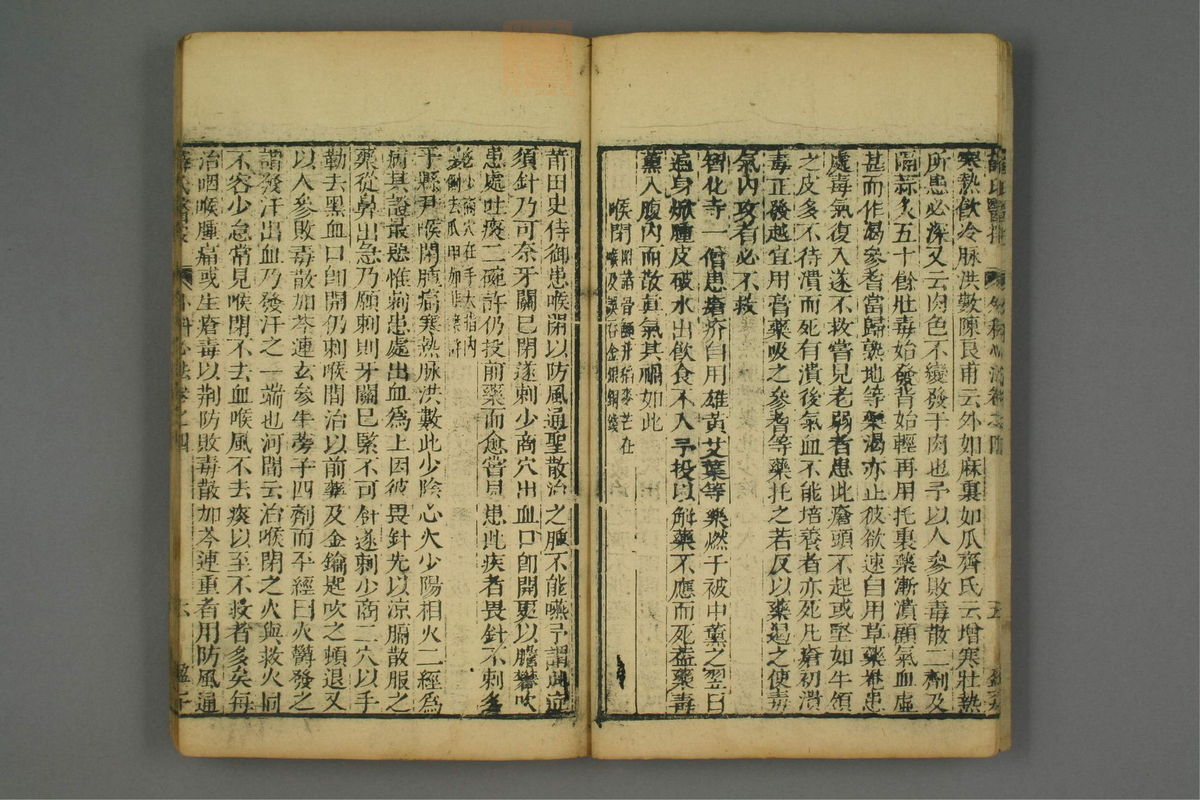 寒熱飲冷脉洪數陳良甫云外如麻裏如瓜齊氏云增寒壯熱
所患必深又云肉色不變發于肉也予以人參敗毒散二劑及
隔蒜灸五十餘壯毒始發背始輕再用托裏藥漸潰顧氣血虛
甚而作渴參耆當歸熟地等藥渴亦止彼欲速自用草藥捲患
處毒氣復入遂不救嘗見老弱者患此瘡頭不起或堅如牛領
之皮多不待潰而死有潰後氣血不能培養者亦死凡瘡初潰
毒正發越宜用膏藥吸之參耆等藥托之若反以藥遏之使毒
氣內攻者必不救
智化寺一僧患瘡疥自用雄黃艾葉等藥燃于被中薰之翌日
遍身焮腫皮破水出飲食不入予投以解藥不應而死蓋藥毒
薰入腹內而散真氣其禍如此
喉閉 附諸骨鯁并稻麥芒在
喉及誤吞金銀銅錢
莆田史侍御患喉閉以防風通聖散治之腫不能嚥予謂此症
須針乃可奈牙關已閉遂刺少商穴出血口卽開更以膽礬吹
患處吐痰二碗許仍投前藥而愈嘗見患此疾者畏針不刺多
少商穴在手大指內
側去爪甲如韭葉許
于縣尹喉閉腫痛寒熱脉洪數此少陰心火少陽相火二經爲
病其證最惡惟刺患處出血爲上因彼畏針先以涼膈散服之
藥從鼻出急乃願刺則牙關已緊不可針遂刺少商二穴以手
勒去黑血口卽開仍刺喉間治以前藥及金鑰匙吹之頓退又
以人參敗毒散加芩連玄參牛蒡子四劑而平經曰火鬱發之
謂發汗出血乃發汗之一端也河間云治喉閉之火與救火同
不容少怠常見喉閉不去血喉風不去痰以至不救者多矣每
治咽喉腫痛或生瘡毒以荆防敗毒散加芩連重者用防風通